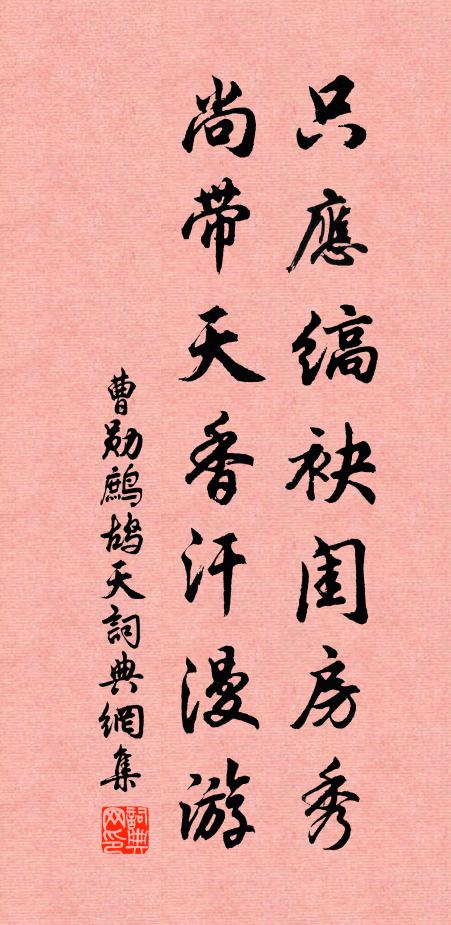 只應縞袂闺房秀
尚带天香汗漫游
曹勛鷓鴣天詞典網集
詞典网印